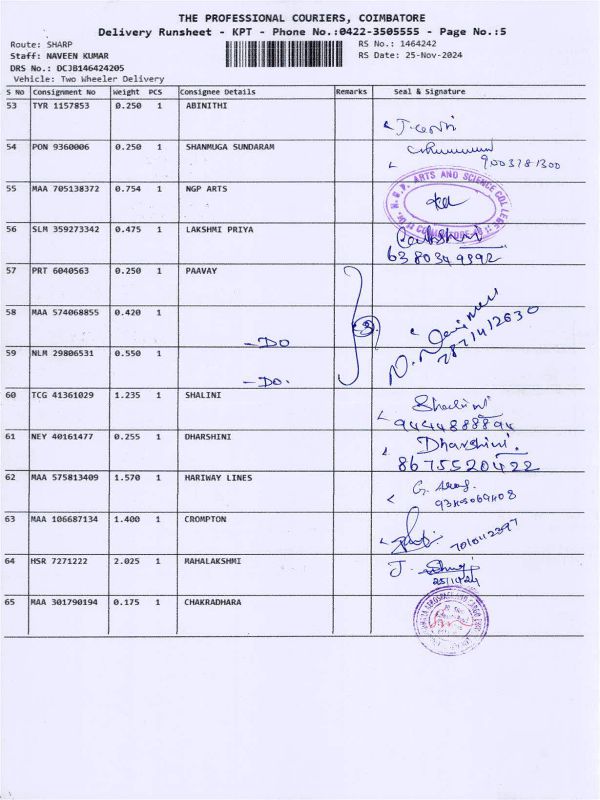 THE PROFESSIONAL COURIERS, COIMBATORE
Delivery Runsheet - KPT - Phone No.:0422-3505555 - Page No.:5
Route: SHARP
RS No.: 1464242
Staff: NAVEEN KUMAR
RS Date: 25-Nov-2024
DRS No.: DCJB146424205
Vehicle: Two Wheeler Delivery
S No Consignment No Weight PCS Consignee Details Remarks Seal & Signature
53 TYR 1157853 0.250 1 ABINITHI
54 PON 9360006 0.250 1 SHANMUGA SUNDARAM
9003781300
55 MAA 705138372 0.754 1 NGP ARTS
Dr. N.G.P. ARTS AND SCIENCE COLLEGE
56 SLM 359273342 0.475 1 LAKSHMI PRIYA
6380349992
57 PRT 6040563 0.250 1 PAAVAY
58 MAA 574068855 0.420 1
- DO
3
7871412630
59 NLM 29806531 0.550 1
- DO.
60 TCG 41361029 1.235 1 SHALINI
Shalini
9444888894
61 NEY 40161477 0.255 1 DHARSHINI
Dharshini.
8675520422
62 MAA 575813409 1.570 1 HARIWAY LINES
63 MAA 106687134 1.400 1 CROMPTON
64 HSR 7271222 2.025 1 MAHALAKSHMI
J.
25/11/24
65 MAA 301790194 0.175 1 CHAKRADHARA